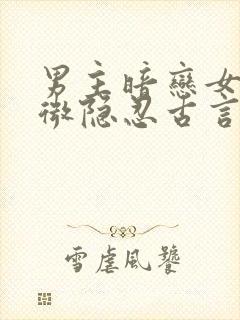 男主暗戀女
微隐忍古言
雪虐風饕